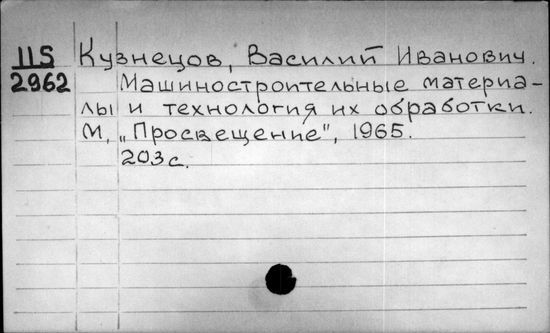 IIS Кузнецов, Василий Иванович.
2962 Машиностроительные материа-
лы и технология их обработки.
М, „Просвещение", 1965.
203 с.